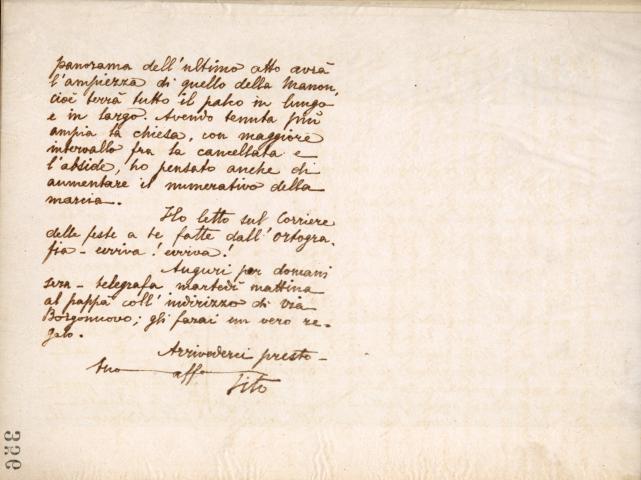 panorama dell'ultimo atto avrà
l'ampiezza di quello della Manon,
cioè terrà tutto il palco in lungo
e in largo. Avendo tenuta più
ampia la chiesa, con maggiore
intervallo fra la cancellata e
l'abside, ho pensato anche di
aumentare il numerativo della
marcia.
Ho letto sul Corriere
delle feste a te fatte dall'ortogra-
fia - evviva! evviva!
Auguri per domani
sera - telegrafa martedì mattina
al pappà coll'indirizzo di via
Borgonuovo; gli farai un vero re-
galo.
Arrivederci presto -
tuo affo
Tito
326